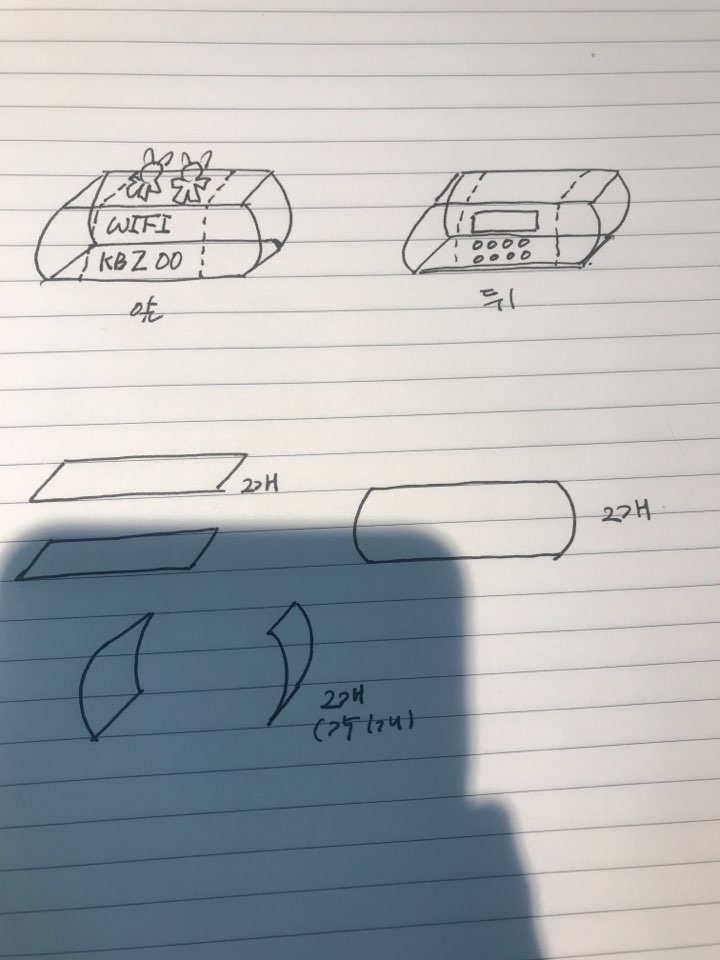 WIFI
KBZ 00
앞
뒤
2개
2개
2개
(각 1개)